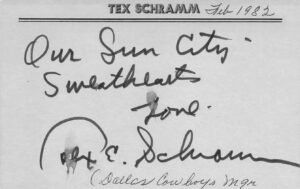 TEX SCHRAMM Feb 1982
Our Sun City
Sweethearts
Love.
Tex E. Schramm
(Dallas Cowboys Mgr